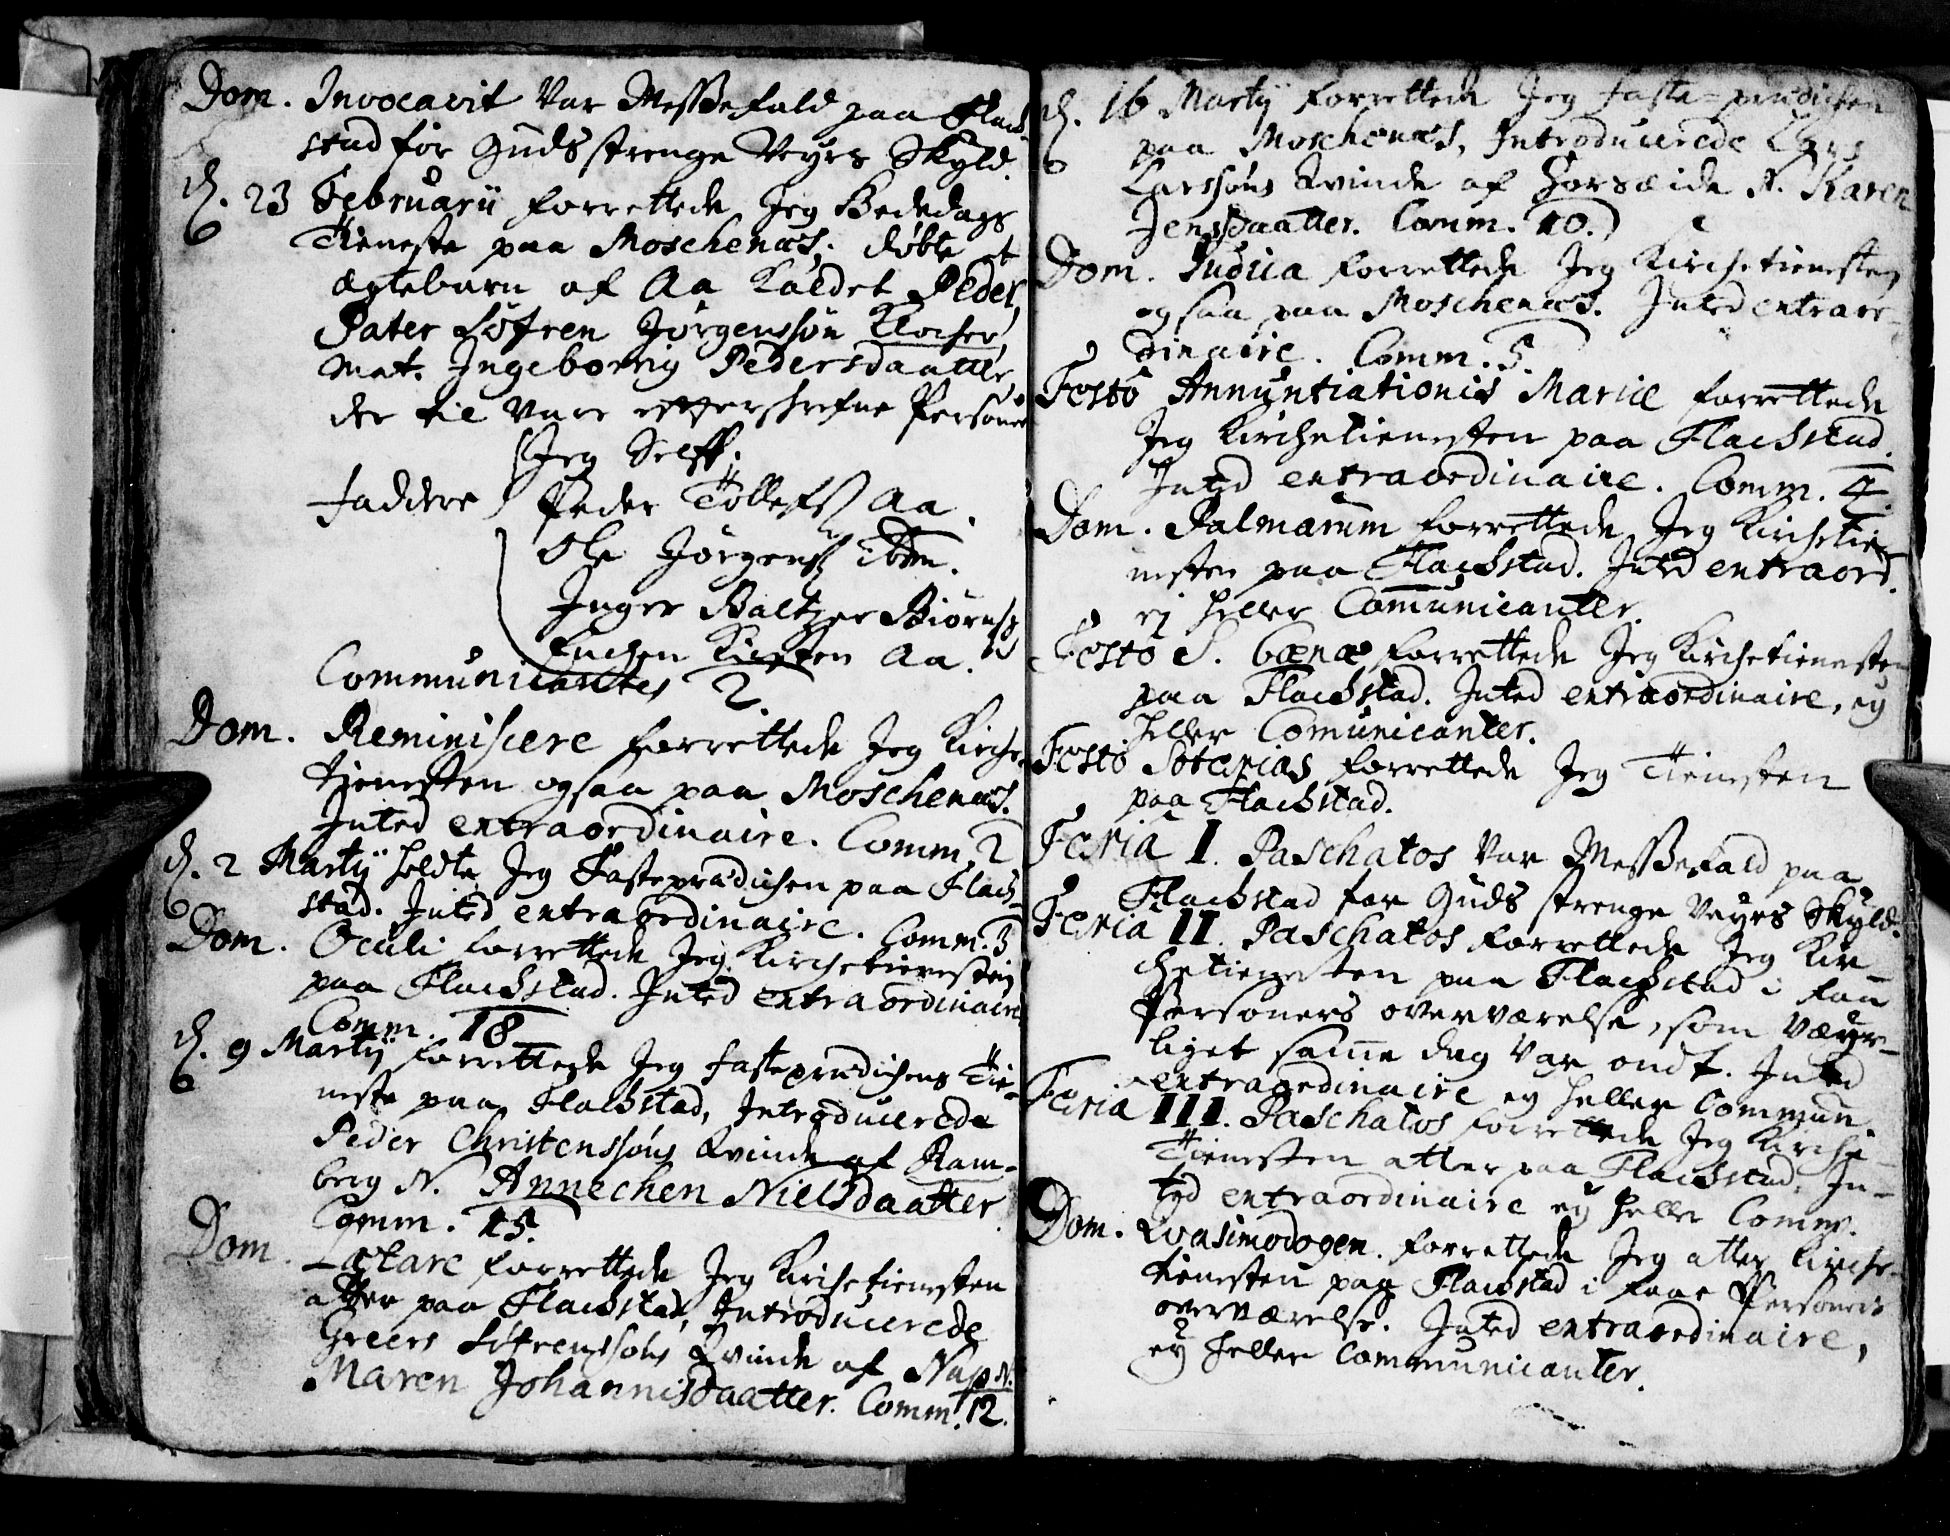 Dom. Invocavit var Messefald paa Flach-
stad for Guds strenge Veyrs Skyld.
d. 23 Februarii forrettede Jeg Bededags
Tieneste paa Moschenæs, døbte et
ægtebarn af Aa kaldet Peder,
Pater Søfren Jørgenssøn Klocher,
Mat. Ingeborrig Pedersdaatter,
der til vare efferskrefne Personer
Jeg Self.
Faddere Peder Tollefs. Aa.
Ole Jørgens. Ibm.
Inger Baltzer Biørns.
Enchen Kirsten Aa.
Communicantes 2.
Dom. Reminiscere forrettede Jeg Kirche-
tienesten ogsaa paa Moschenæs.
Inted extraordinaire. Comm. 2
d. 2 Martij holdte Jeg Fasteprædichen paa Flach-
stad. Inted extraordinaire. Comm. 3
Dom. Oculi forrettede Jeg Kirchetienesten
paa Flachstad. Inted extraordinaire
Comm. 18
d. 9 Martij forrettede Jeg fasteprædichens Tie-
neste paa Flachstad, Introducerede
Peder Christenssøns Qvinde af Ram-
berg N. Annechen Nielsdaatter
Comm. 15.
Dom. Lætare forrettede Jeg Kirchetienesten
atter paa Flachstad, Introducerede
Greers Søfrenssøns Qvinde af Nap N.
Maren Johannisdaatter. Comm. 12.
d. 16 Martij forrettede Jeg faste-prædichen
paa Moschenæs, Introducerede Lars
Larssøns Qvinde af N. Karen
Jensdaatter. Comm. 10.
Dom. Iudica forrettede Jeg Kirchetienesten
ogsaa paa Moschenæs. Inted extraor-
dinaire. Comm. 5.
Festo Annuntiationis Mariæ forrettede
Jeg Kirchetienesten paa Flachstad.
Inted extraordinaire. Comm. 4
Dom. Palmarum forrettede Jeg Kirchetie-
nesten paa Flachstad. Inted extraord.
ej heller Comunicanter.
Festo S. Cænæ forrettede Jeg Kirchetienesten
paa Flachstad. Inted extraordinaire, ey
heller Comunicanter.
Festo Soterias forrettede Jeg Tienesten
paa Flachstad.
Feria I. Paschatos var Messefald paa
Flachstad for Guds strenge Veyrs Skyld.
Feria II. Paschatos forrettede Jeg Kir-
chetienesten paa Flachstad i faae
Personers overværelse, som Væyr-
liget samme dag var ondt. Inted
extraordinaire ey heller Commun.
Feria III. Paschatos forrettede Jeg Kirche-
Tienesten atter paa Flachstad. In-
ted extraordinaire ey heller Comm.
Dom. Qvasimodogen. forrettede Jeg atter Kirche-
tienesten paa Flachstad i faae Personers
overværelse. Inted extraordinaire,
ey heller Communicanter.